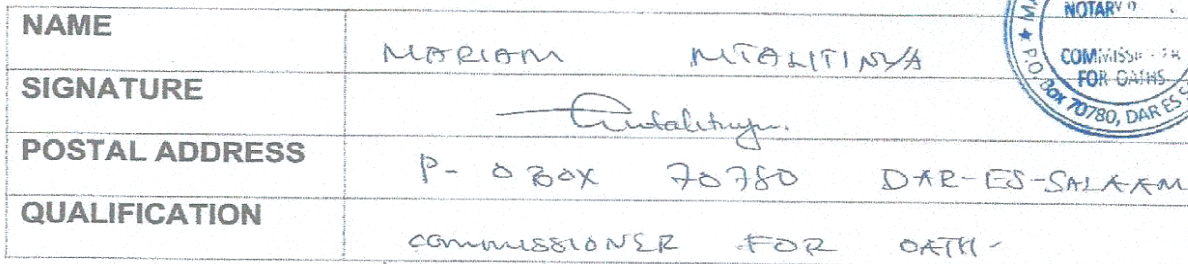 NAME MARIAM MTALITINYA
SIGNATURE
POSTAL ADDRESS P- O BOX 70780 DAR-ES-SALAAM
QUALIFICATION COMMISSIONER FOR OATH-
NOTARY
COMMISSI
FOR OATHS
P.O. Box 70780, DAR ES S